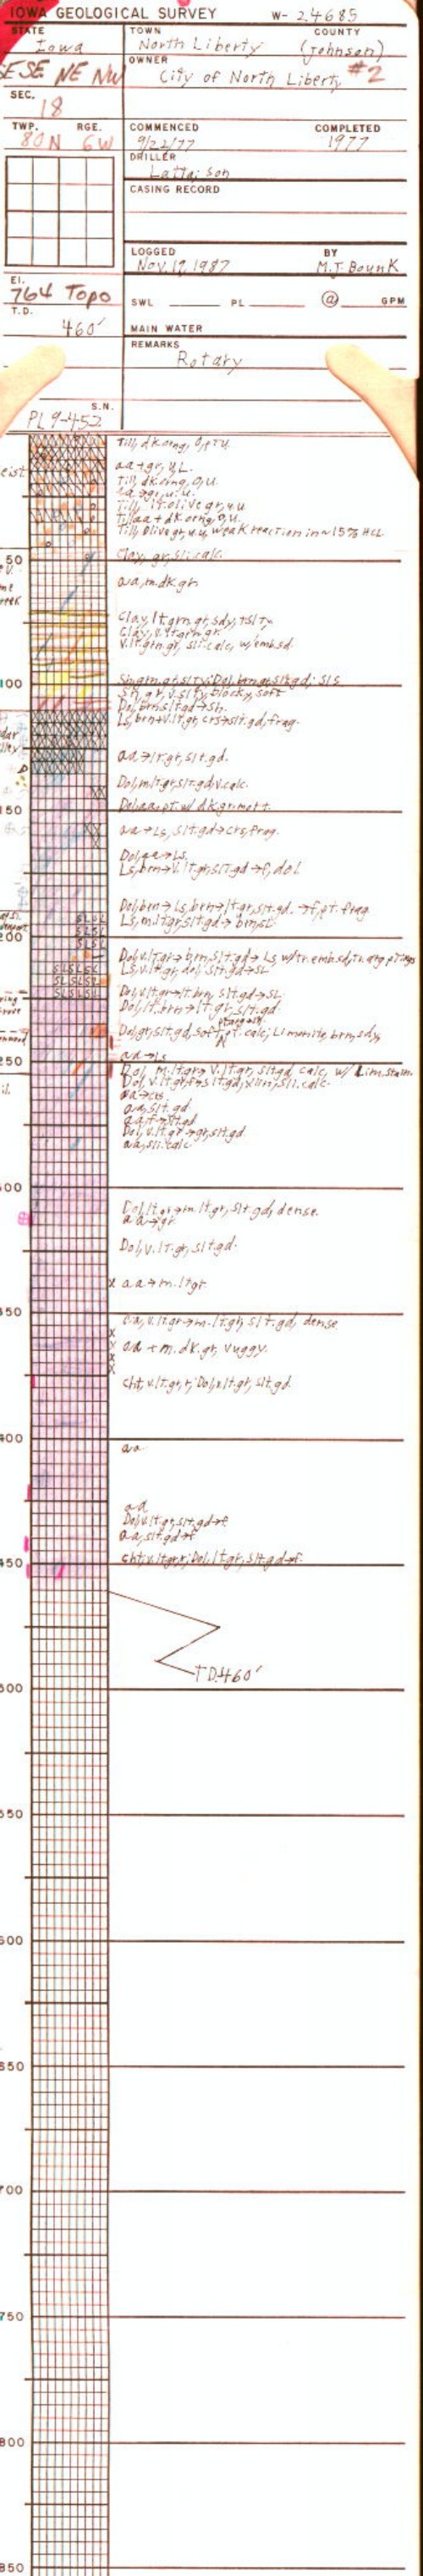 IOWA GEOLOGICAL SURVEY W- 24685
STATE TOWN COUNTY
Iowa North Liberty (Johnson)
OWNER
SE SE NE NW City of North Liberty #2
SEC.
18
TWP. RGE. COMMENCED COMPLETED
80N 6W 9/22/77 1977
DRILLER
CASING RECORD
LOGGED BY
Nov. 19, 1987 M.J. Bounk
El.
764 Topo
SWL PL @ GPM
T.D.
460' MAIN WATER
REMARKS
Rotary
S.N.
PL 9-452
Till, dk orng, O,
aa+gr, U,L.
eist
Till, dk orng, O,U.
Till, lt. olive gr, U,U
Till aa + dk orng, O,U.
Till, Olive gr, U,U, weak reaction in ~15% HCL
50 Clay, gr, sli. calc.
aa, m.dk.gr
Clay, lt.grn.gr, sdy,
Clay, V.lt.grn.gr
V.lt.grn.gr, sli. calc, w/emb.sd.
100
Sh, gr, V.slty, blocky, soft
Ls, brn+V.lt.gr, crs→slt.gd, frag.
aa→lt.gr, slt.gd.
Dol, m.lt.gr, slt.gd, V.calc.
150 Dol, aa, pt. w/ dk.gr. mott.
aa→Ls, slt.gd→crs, frag.
Dol, aa→Ls
Ls, brn→V.lt.gr, slt.gd→f, dol
Dol, brn→Ls, brn→lt.gr, slt.gd.→f, pt. frag
SLSL Ls, m.lt.gr, slt.gd→brn, SL
SLS
200 SLS
SLSLSL Ls, V.lt.gr, dol, slt.gd→SL
SLSLS
SLSLSL Dol, V.lt.gr→lt.brn, slt.gd→SL
Dol, lt.brn→lt.gr, slt.gd.
Dol, gr, slt.gd, soft, pt. calc, Limonite, brn, sdy
aa→Ls
250 Dol, m.lt.gr→V.lt.gr, slt.gd, calc, w/ Lim.stain.
Dol, V.lt.gr, f→slt.gd, xlin, sli. calc.
aa→crs
aa, slt.gd
aa, f→slt.gd
Dol, V.lt.gr→gr, slt.gd
aa, sli. calc
300
Dol, lt.gr→m.lt.gr, slt.gd, dense.
aa→gr.
Dol, V.lt.gr, slt.gd.
x aa→m.lt.gr
350 aa, V.lt.gr→m.lt.gr, slt.gd, dense
x
x aa + m.dk.gr, Vuggy.
x
x
cht, V.lt.gr, r; Dol, V.lt.gr, slt.gd.
400 aa
aa
Dol, V.lt.gr, slt.gd→f
aa, slt.gd→f
450 cht, V.lt.gr, r; Dol, lt.gr, slt.gd→f.
T.D. 460'
500
550
600
650
700
750
800
850